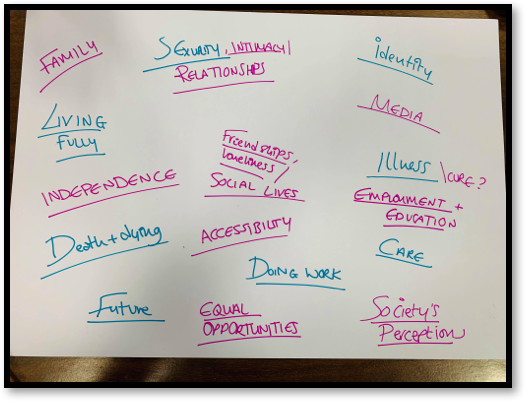 FAMILY
SExuality, INTIMACY/
RELATIONSHIPS
identity
MEDIA
LIVING
FULLY
Friendships,
loneliness/
SOCIAL LIVES
Illness \CURE?
INDEPENDENCE
EMPLOYMENT +
EDUCATION
Death + dying
ACCESSIBILITY
CARE
DOING WORK
Future
EQUAL
OPPORTUNITIES
Society's
Perception